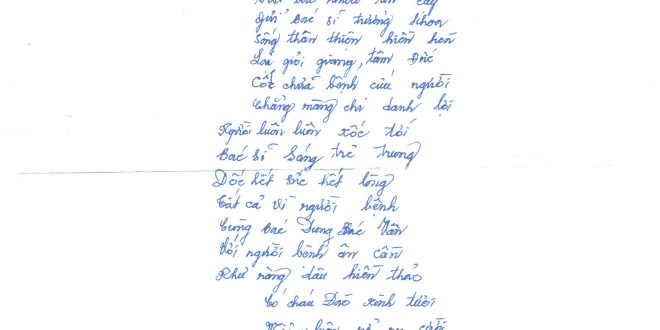 Gửi bác sĩ trưởng khoa
Sống thân thiện hiền hoà
Lại giỏi giang, tâm đức
Cốt chữa bệnh cứu người
Chẳng màng chi danh lợi
Người luôn luôn xốc tới
Bác sĩ Sáng trẻ trung
Dốc hết sức hết lòng
Tất cả vì người bệnh
Cùng bác Dung bác Vân
Với người bệnh ân cần
Như nàng dâu hiền thảo
Có cháu Đào xinh tươi